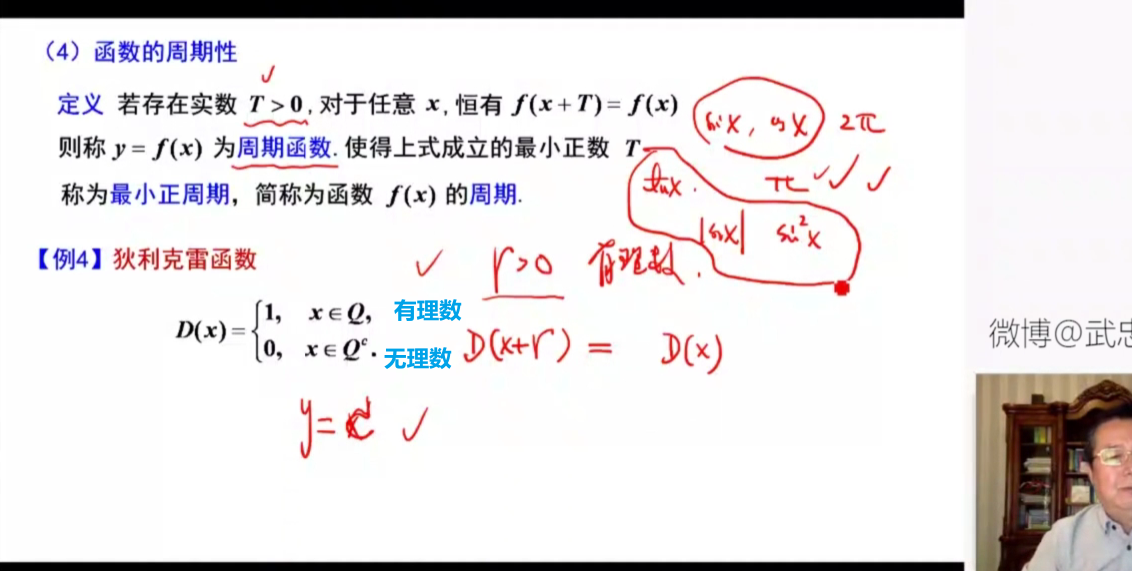 （4）函数的周期性
定义 若存在实数 T > 0, 对于任意 x, 恒有 f(x+T)= f(x)
sinx, cosx 2π
则称 y = f(x) 为周期函数. 使得上式成立的最小正数 T
tanx. π
称为最小正周期，简称为函数 f(x) 的周期.
|sinx| sin²x
【例4】狄利克雷函数
r>0 有理数.
D(x)= { 1, x∈Q, 有理数
0, x∈Qᶜ. 无理数
D(x+r) = D(x)
y=C
微博@武忠